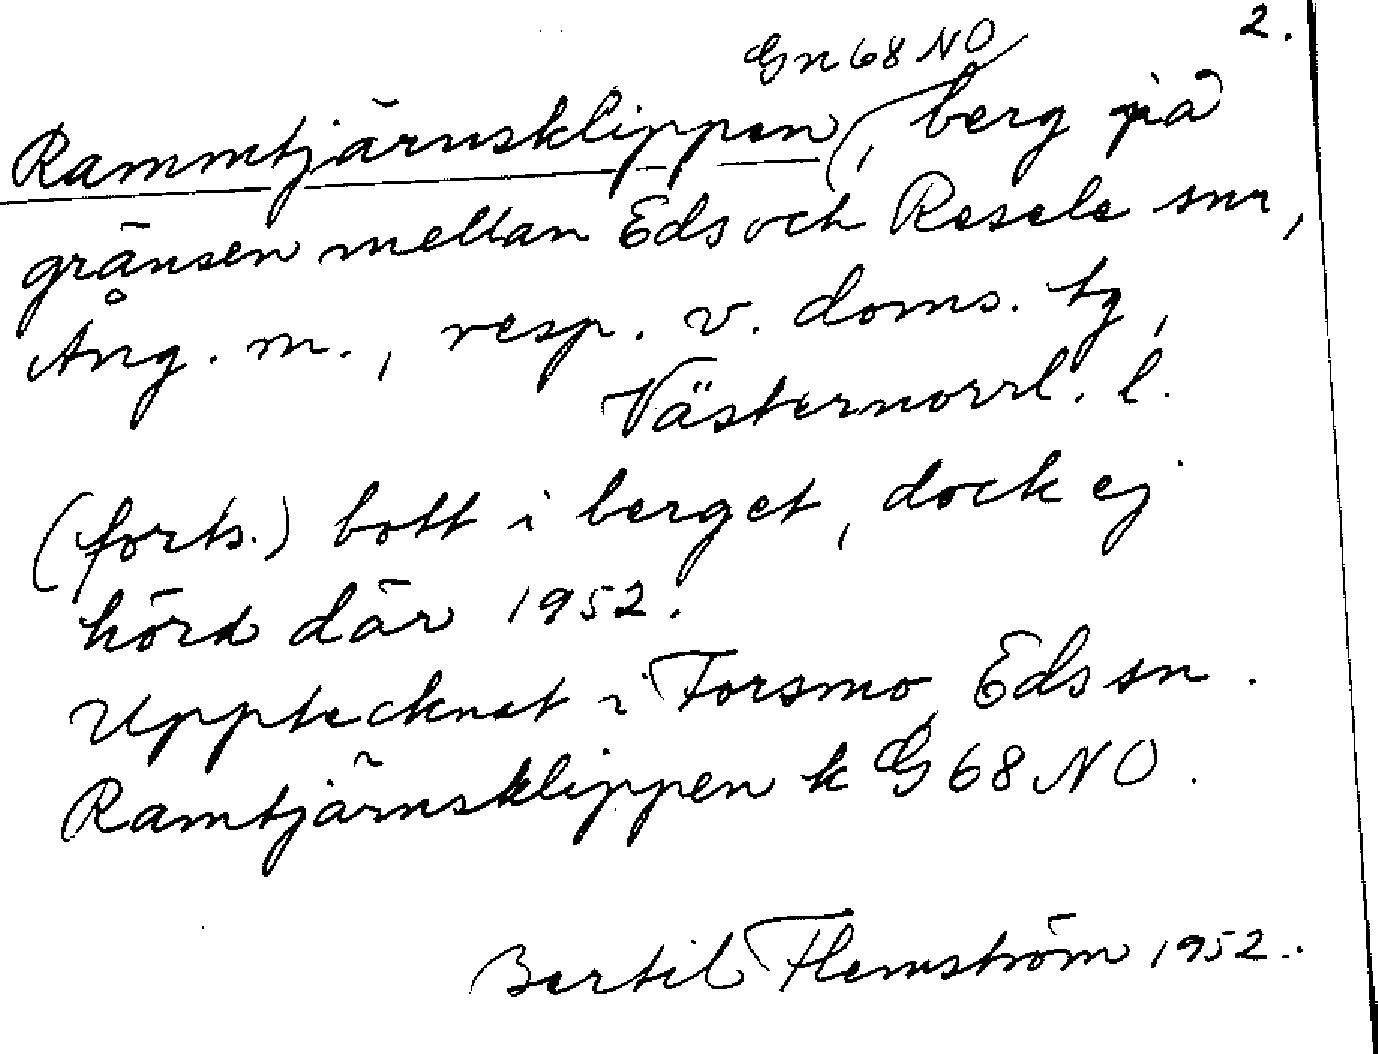 2.
Gn 68 NO
Rammtjärnsklippen, berg på
gränsen mellan Eds och Resele snr,
Ång. m., resp. v. doms. tg,
Västernorrl. l.
(forts.) bott i berget, dock ej
hörd där 1952.
Upptecknat i Forsmo, Eds sn.
Ramtjärnsklippen k G 68 NO.
Bertil Flemström 1952.